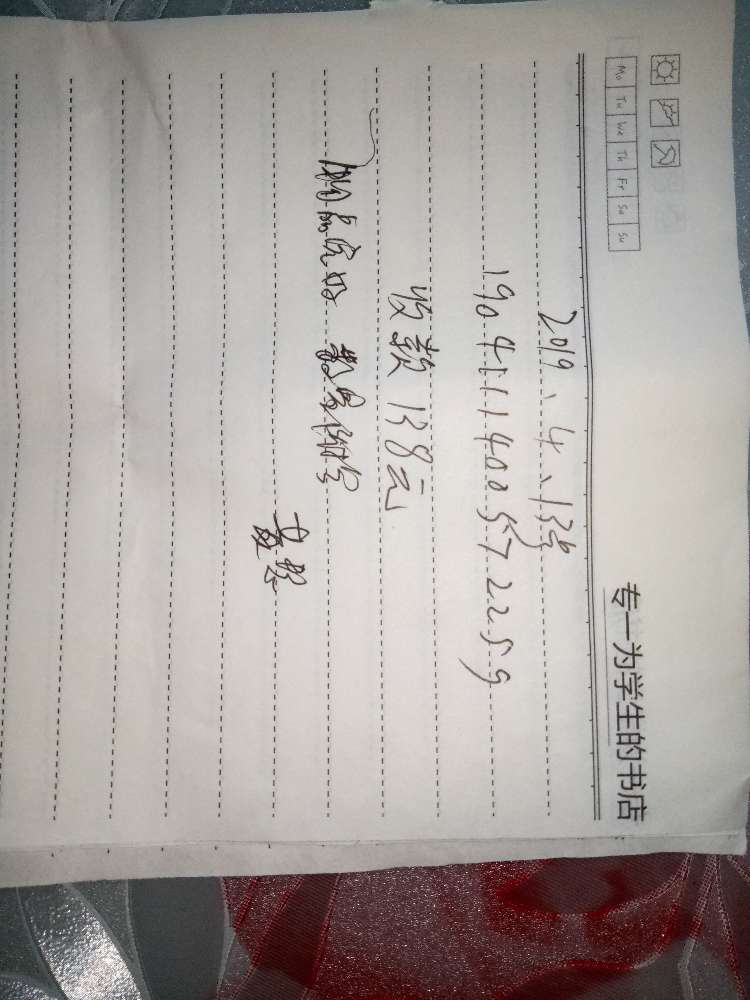 Mo Tu We Th Fr Sa Su
专一为学生的书店
2019、4、13号
1904111400572259
收款138元
商品完好 数量